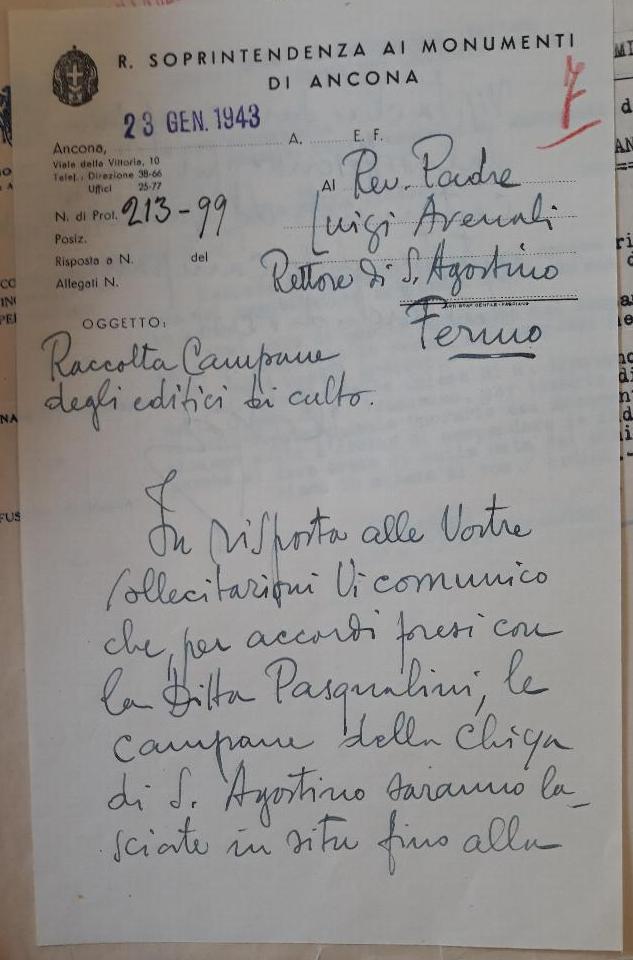 R. SOPRINTENDENZA AI MONUMENTI
DI ANCONA
23 GEN. 1943
Ancona, A. E. F.
Viale della Vittoria, 10
Telef.: Direzione 38-66
Uffici 25-77
Al Rev. Padre
N. di Prot. 213-99
Luigi Arenali
Posiz.
Risposta a N. del
Rettore di S. Agostino
Allegati N.
Fermo
OGGETTO:
Raccolta Campane
degli edifici di culto.
In risposta alle Vostre
sollecitazioni Vi comunico
che, per accordi presi con
la Ditta Pasqualini, le
campane della Chiesa
di S. Agostino saranno la_
sciate in situ fino alla